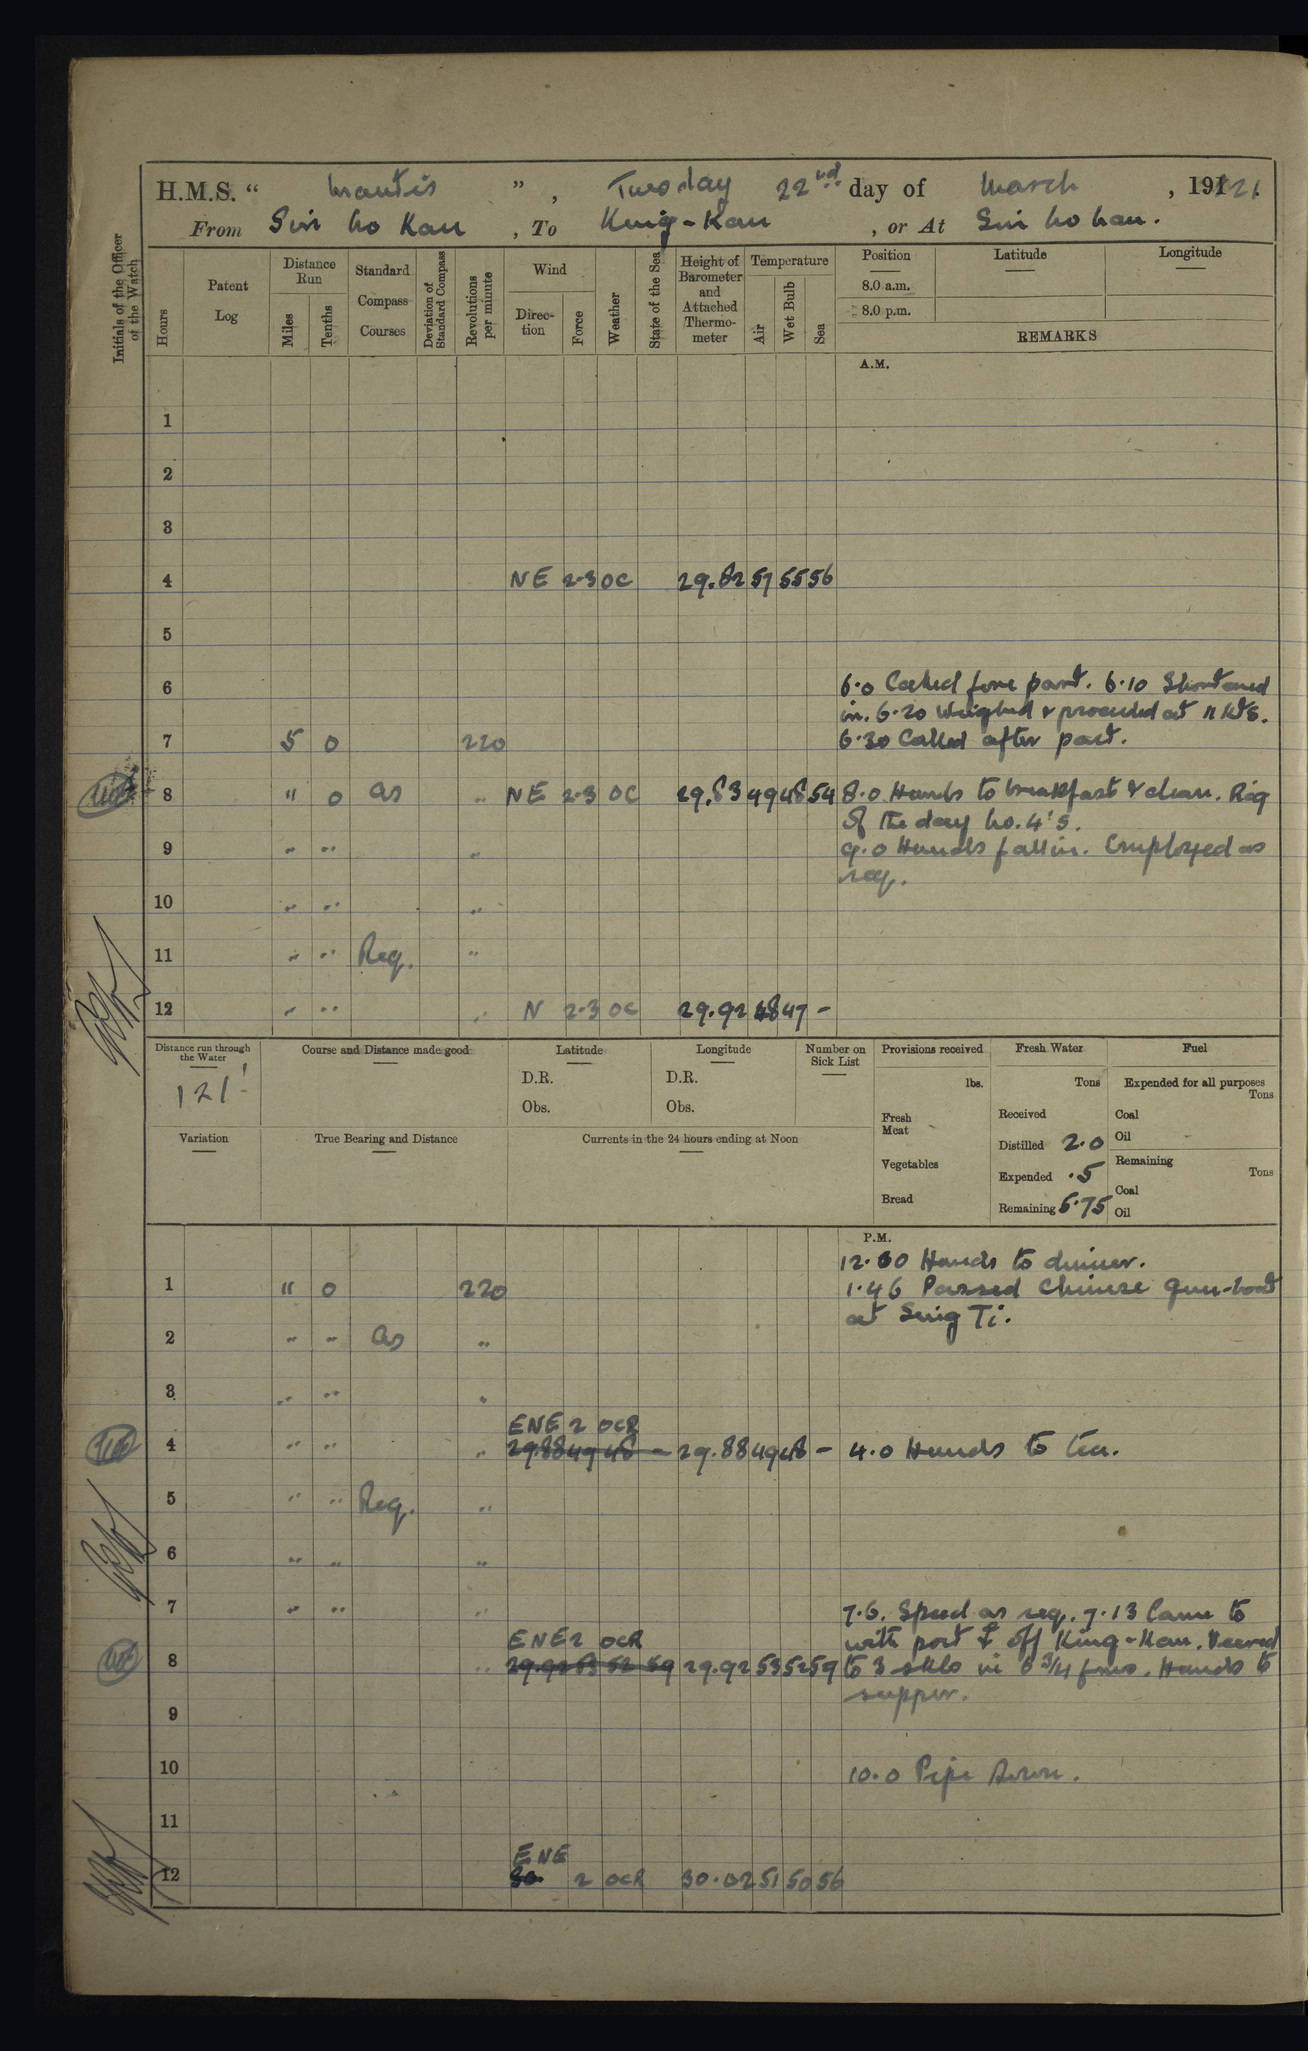 H.M.S. “ Mantis ” , Tuesday 22nd day of March , 1921.
From Sin ho Kau , To King-Kau , or At Sin ho kau.
Initials of the Officer of the Watch
Hours
Patent Log
Distance Run
Miles
Tenths
Standard Compass Courses
Deviation of Standard Compass
Revolutions per minute
Wind
Direction
Force
Weather
State of the Sea
Height of Barometer and Attached Thermometer
Temperature
Air
Wet Bulb
Sea
Position
8.0 a.m.
8.0 p.m.
Latitude
Longitude
REMARKS
A.M.
1
2
3
4 NE 2-3 OC 29.82 57 55 56
5
6 6.0 Called fore part. 6.10 Shortened
in. 6.20 Weighed & proceeded at 11 Kts.
7 5 0 220 6.30 Called after part.
8 " 0 as " NE 2-3 OC 29.83 49 48 54 8.0 Hands to breakfast & clean. Rig
of the day No. 4's.
9 " " " 9.0 Hands fall in. Employed as
req.
10 " " "
11 " " Req. "
12 " " " N 2-3 OC 29.92 48 47 -
Distance run through the Water
121'
Course and Distance made good
Latitude
D.R.
Obs.
Longitude
D.R.
Obs.
Number on Sick List
Provisions received
lbs.
Fresh Meat
Vegetables
Bread
Fresh Water
Tons
Received
Distilled 2.0
Expended .5
Remaining 6.75
Fuel
Expended for all purposes
Tons
Coal
Oil
Remaining
Tons
Coal
Oil
Variation
True Bearing and Distance
Currents in the 24 hours ending at Noon
P.M.
12.00 Hands to dinner.
1 " 0 220 1.46 Passed Chinese Gun-boat
at Sing Ti.
2 " " as "
3 " " "
ENE 2 OCR
4 " " " 29.88 49 48 - 29.88 49 48 - 4.0 Hands to tea.
5 " " Req. "
6 " " "
7 " " " 7.6. Speed as req. 7.13 Came to
ENE 2 OCR with port ⚓ off King-Kau. Veered
8 " 29.92 53 52 59 29.92 53 52 59 to 3 skls in 6 3/4 fms. Hands to
supper.
9
10 10.0 Pipe Down.
11
ENE
12 30. 2 OCR 30.02 51 50 56